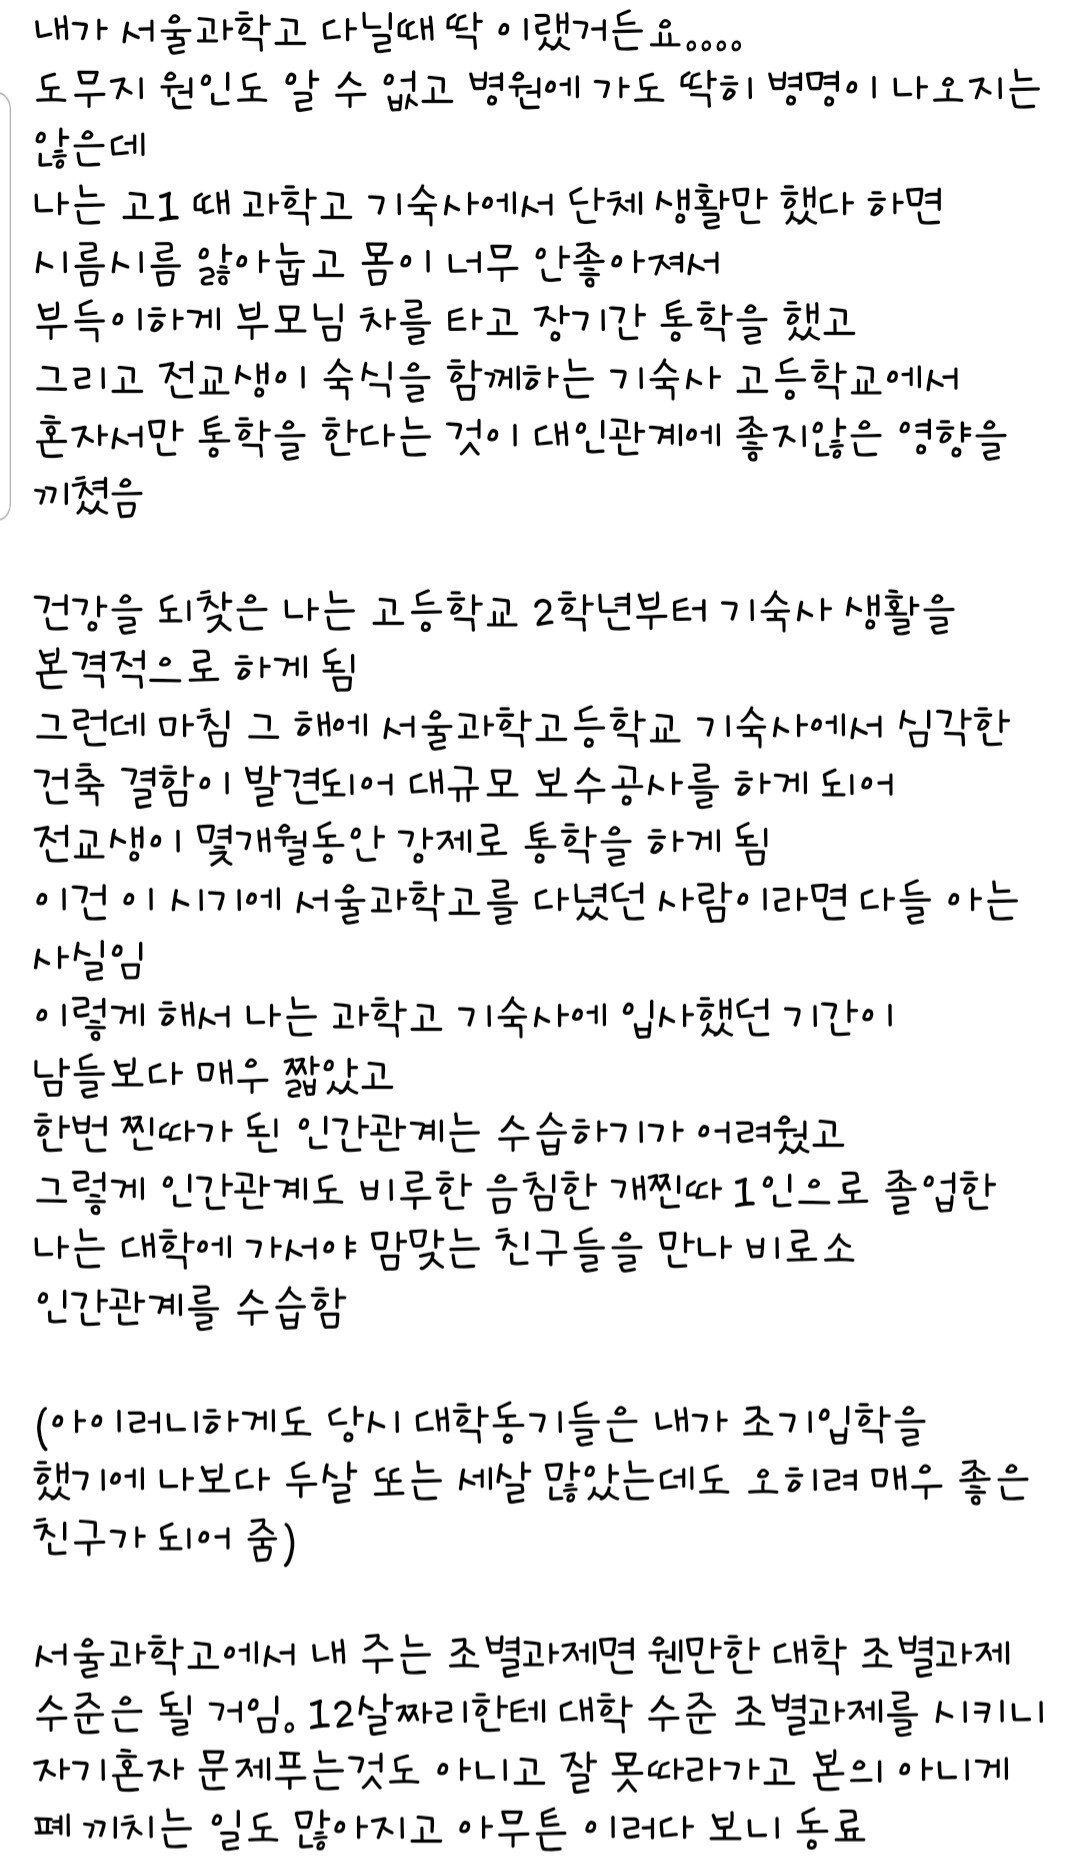 내가 서울과학고 다닐때 딱 이랬거든요....
도무지 원인도 알 수 없고 병원에 가도 딱히 병명이 나오지는
않은데
나는 고1 때 과학고 기숙사에서 단체 생활만 했다 하면
시름시름 앓아눕고 몸이 너무 안좋아져서
부득이하게 부모님 차를 타고 장기간 통학을 했고
그리고 전교생이 숙식을 함께하는 기숙사 고등학교에서
혼자서만 통학을 한다는 것이 대인관계에 좋지않은 영향을
끼쳤음
건강을 되찾은 나는 고등학교 2학년부터 기숙사 생활을
본격적으로 하게 됨
그런데 마침 그 해에 서울과학고등학교 기숙사에서 심각한
건축 결함이 발견되어 대규모 보수공사를 하게 되어
전교생이 몇개월동안 강제로 통학을 하게 됨
이건 이 시기에 서울과학고를 다녔던 사람이라면 다들 아는
사실임
이렇게 해서 나는 과학고 기숙사에 입사했던 기간이
남들보다 매우 짧았고
한번 찐따가 된 인간관계는 수습하기가 어려웠고
그렇게 인간관계도 비루한 음침한 개찐따 1인으로 졸업한
나는 대학에 가서야 맘맞는 친구들을 만나 비로소
인간관계를 수습함
(아이러니하게도 당시 대학동기들은 내가 조기입학을
했기에 나보다 두살 또는 세살 많았는데도 오히려 매우 좋은
친구가 되어 줌)
서울과학고에서 내 주는 조별과제면 웬만한 대학 조별과제
수준은 될 거임. 12살짜리한테 대학 수준 조별과제를 시키니
자기혼자 문제푸는것도 아니고 잘 못따라가고 본의 아니게
폐 끼치는 일도 많아지고 아무튼 이러다 보니 동료